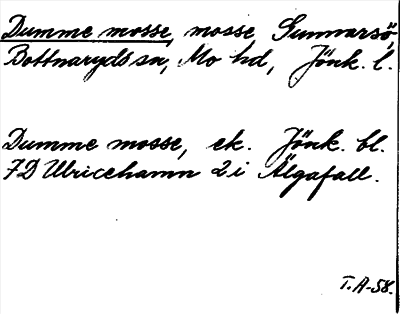 Dumme mosse, mosse, Gunnarsö,
Bottnaryds sn, Mo hd, Jönk. l.
Dumme mosse, ek. Jönk. bl.
7D Ulricehamn 2i Älgafall.
T.A-58.